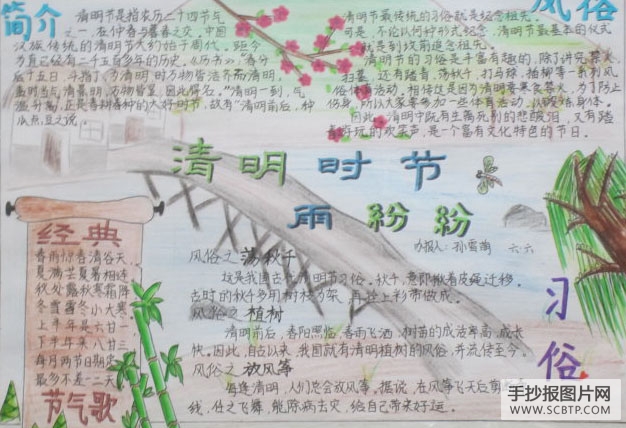 简介
清明节是指农历二十四节气
之一,在仲春与暮春之交,中国
汉族传统的清明节大约始于周代,距今
为直已经有二千五百多年的历史。《历书》:“春分
后十五日,斗指丁,为清明,时万物皆洁齐而清明,
盖时当气清景明,万物皆显,因此得名。”清明一到,气
温升高,正是春耕春种的大好时节,故有“清明前后,种
瓜点豆之说
风俗
清明节最传统的习俗就是纪念祖先。
可是,不论以何种形式纪念,清明节最基本的仪式
就是到坟前追念祖先。
清明节的习俗是丰富有趣的,除了讲究禁火、
扫墓,还有踏青、荡秋千、打马球、插柳等一系列风
俗体育活动。相传这是因为清明要寒食禁火,为了防止
伤身,所以大家要参加一些体育活动,以锻炼身体。
因此,清明中既有生离死别的悲酸泪,又有踏
青游玩的欢笑声,是一个富有文化特色的节日。
清明时节
雨纷纷
办报人:孙雪萌 六.六
经典
春雨惊春清谷天,
夏满芒夏暑相连
秋处露秋寒霜降
冬雪雪冬小大寒
上半年是六廿一
下半年来八廿三
每月两节日期定
最多不差一二天
节气歌
风俗之荡秋千
这是我国古代清明节习俗。秋千,意即揪着皮绳迁移。
古时的秋千多用树枝为架,再拴上彩带做成。
风俗之植树
清明前后,春阳照临,春雨飞洒,树苗的成活率高,成长
快。因此,自古以来,我国就有清明植树的风俗,并流传至今。
风俗之放风筝
每逢清明,人们总会放风筝。据说,在风筝飞天后剪
线,任之飞舞,能除病去灾,给自己带来好运。
习俗
手抄报图片网
WWW.SCBTP.COM